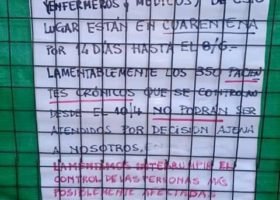 (ENFERMEROS Y MÉDICOS) DE ESTE
LUGAR ESTÁN EN CUARENTENA
POR 14 DÍAS HASTA EL 8/6.-
LAMENTABLEMENTE LOS 350 PACIEN
TES CRÓNICOS QUE SE CONTROLAN
DESDE EL 10/4 NO PODRÁN SER
ATENDIDOS POR DECISIÓN AJENA
A NOSOTROS.
LAMENTAMOS INTERRUMPIR EL
CONTROL DE LAS PERSONAS MÁS
POSIBLEMENTE AFECTADAS